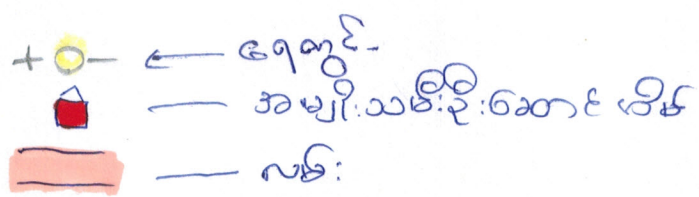 ရေတွင်း
အမျိုးသမီးဦးဆောင် အိမ်
လမ်း